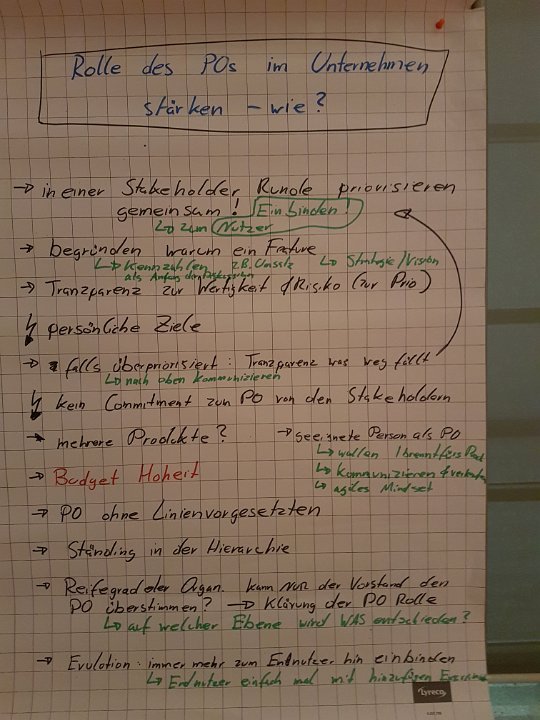 Rolle des POs im Unternehmen
stärken – wie?
→ in einer Stakeholder Runde priorisieren
gemeinsam! Einbinden!
↳ zum Nutzer
→ begründen warum ein Feature
↳ Kennzahlen z.B. Umsatz ↳ Strategie/Vision
als Anfang der
→ Tranzparenz zur Wertigkeit & Risiko (zur Prio)
persönliche Ziele
→ falls überpriorisiert: Tranzparenz was weg fällt
↳ nach oben kommunizieren
kein Commitment zum PO von den Stakeholdern
→ mehrere Produkte? → geeignete Person als PO
↳ wollen / brennt fürs
↳ kommunizieren &
↳ agiles Mindset
→ Budget Hoheit
→ PO ohne Linienvorgesetzten
→ Ständing in der Hierarchie
→ Reifegrad der Organ. kann nur der Vorstand den
PO überstimmen? → Klärung der PO Rolle
↳ auf welcher Ebene wird WAS entschieden?
→ Evulotion: immer mehr zum Endnutzer hin einbinden
↳ Endnutzer einfach mal mit hinzufügen
Lyreco